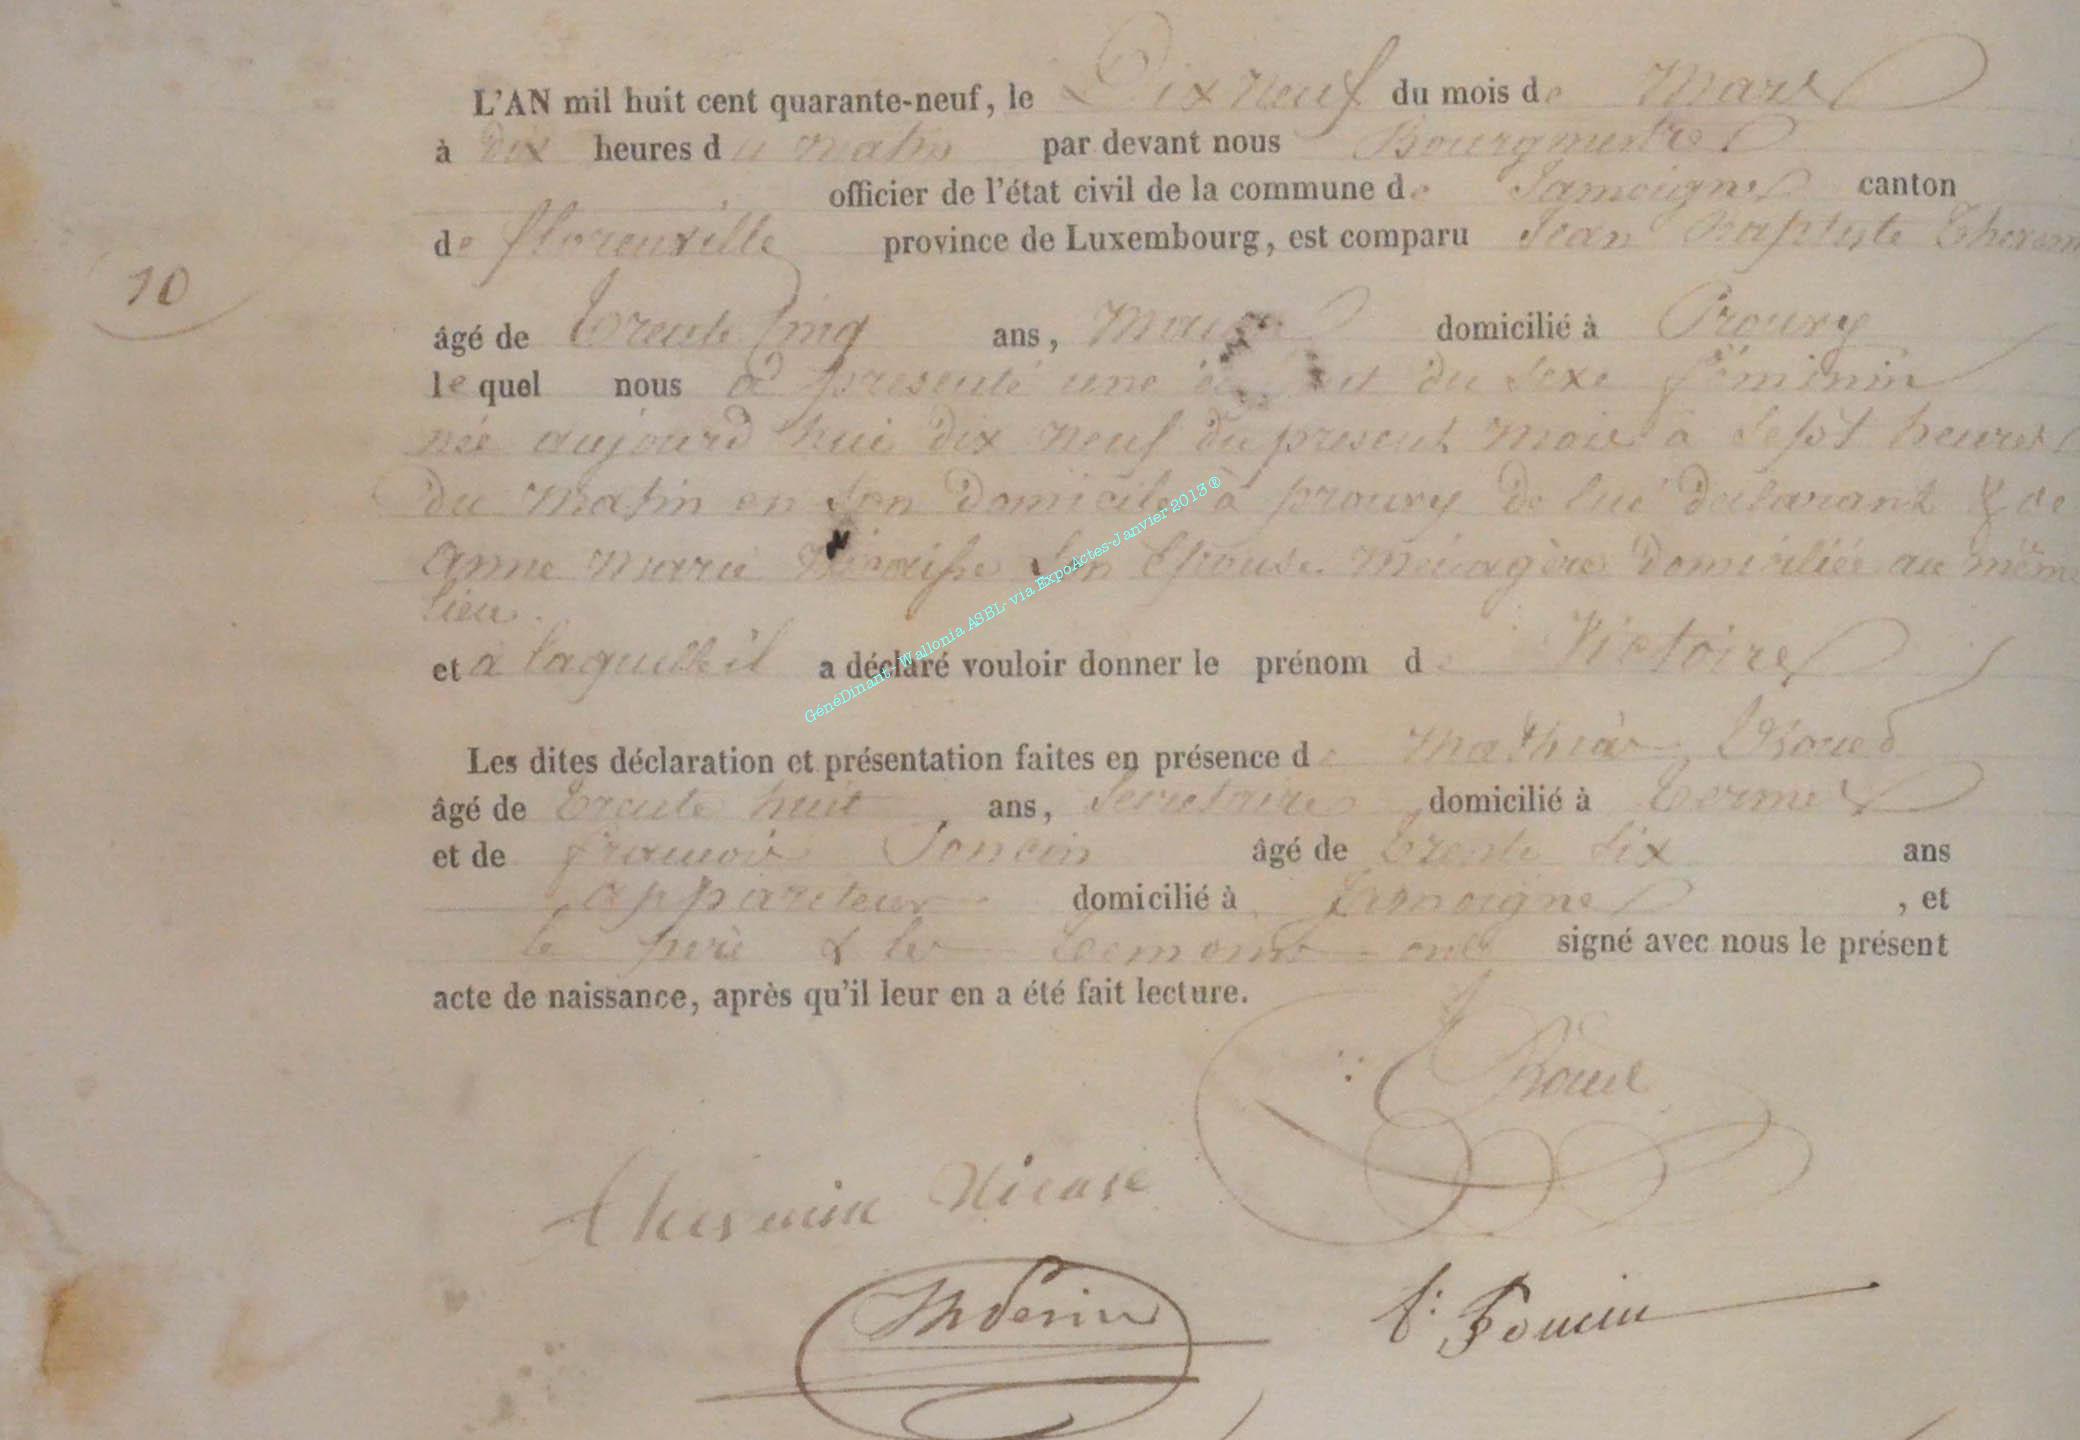 L'AN mil huit cent quarante-neuf, le Dix neuf du mois de Mars
à dix heures du matin par devant nous Bourgmestre
officier de l'état civil de la commune de Jamoigne canton
de florenville province de Luxembourg, est comparu Jean Baptiste
10
âgé de trente cinq ans, domicilié à Prouvy
lequel nous a presenté une du sexe féminin
née aujourd hui dix neuf du present mois à sept heures
du matin en son domicile à prouvy de lui declarant & de
anne marie son Epouse Ménagère domiciliée au même
lieu.
et à laquelle il a déclaré vouloir donner le prénom de Victoire
Les dites déclaration et présentation faites en présence de Mathias
âgé de trente huit ans, Secretaire domicilié à termes
et de françois Joncin âgé de trente six ans
appariteur domicilié à Jamoigne , et
le père & les temoins ont signé avec nous le présent
acte de naissance, après qu'il leur en a été fait lecture.
GénéDinant - Wallonia ASBL- via ExpoActes-Janvier 2013®